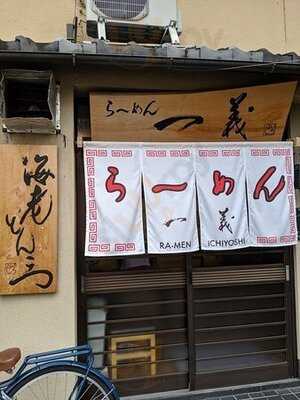 らーめん 一義
らーめん
一義
RA-MEN ICHIYOSHI
海老そば